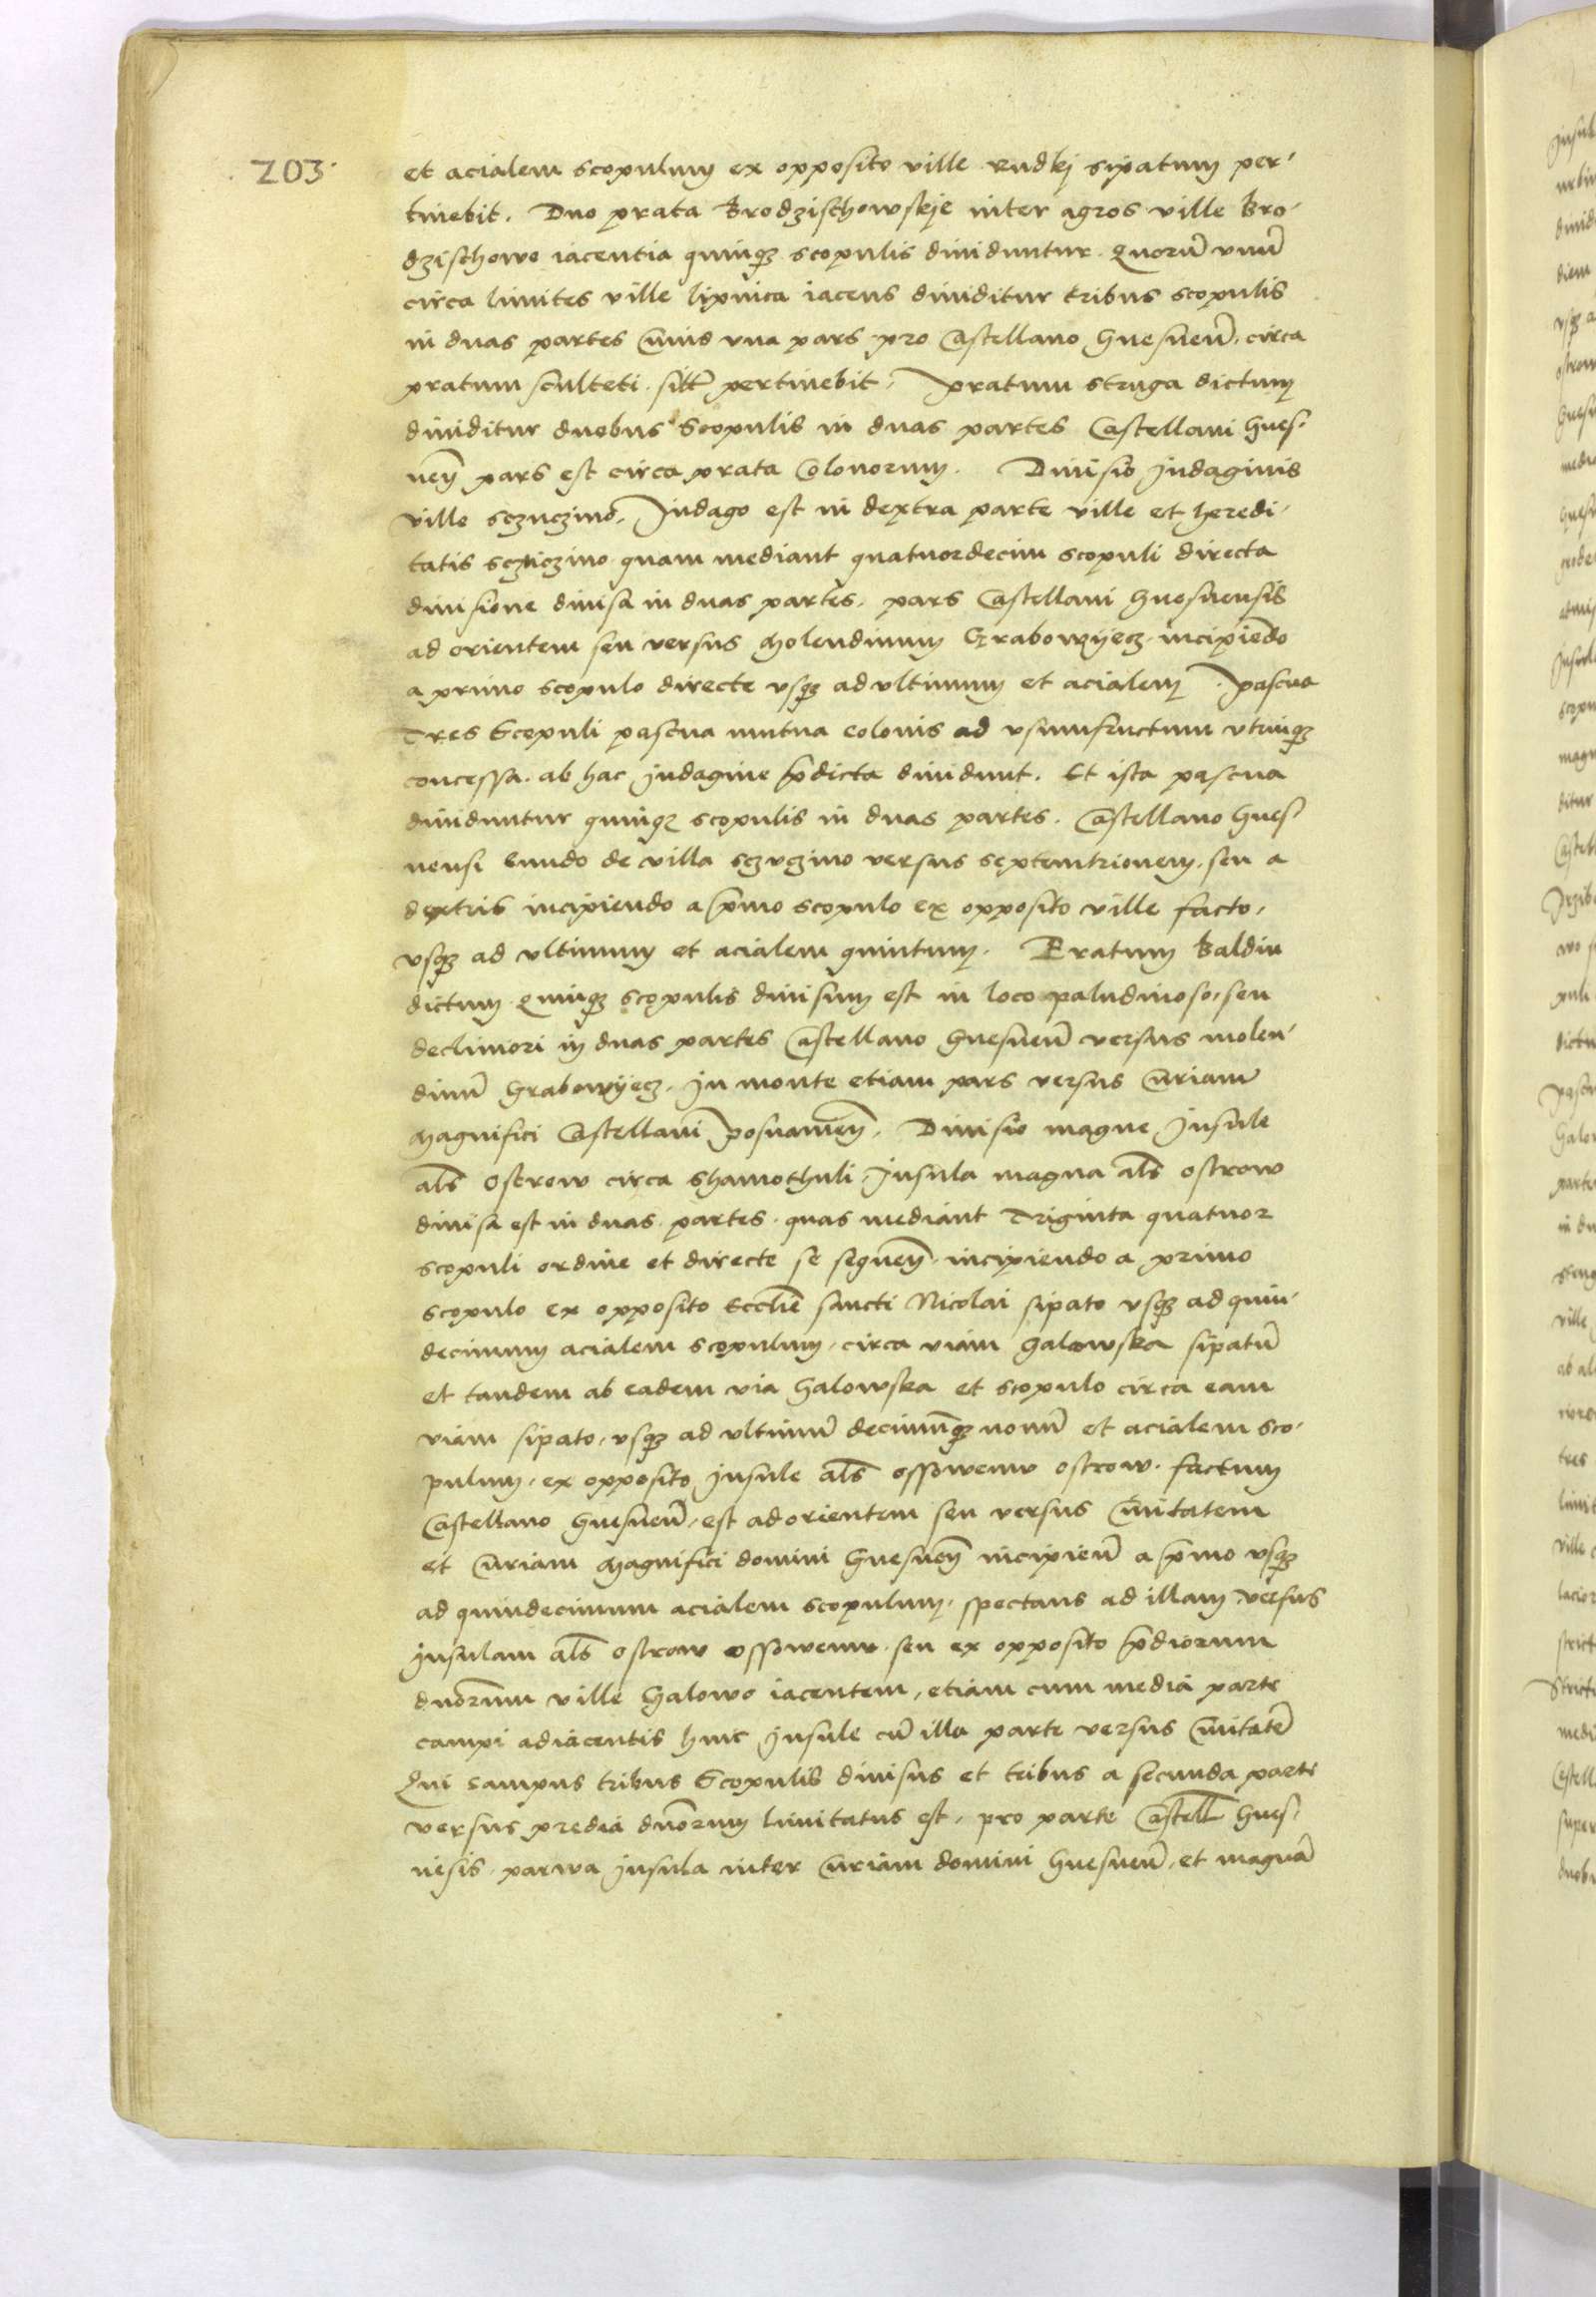 203
et acialem scopulum ex opposito ville Rudkj sipatum per-
tinebit. Duo prata Brodzischowskje inter agros ville Bro-
dzischowo iacentia quinqz scopulis diuiduntur. Quorū vnū
circa limites ville lipnica iacens diuiditur tribus scopulis
in duas partes Cuius vna pars pro Castellano Gnesneñ. circa
pratum sculteti. silr pertinebit. Pratum struga dictum
diuiditur duobus scopulis in duas partes Castellani Gnes-
neñ pars est circa prata Colonorum. Diuisio Jndaginis
ville sczuczino. Jndago est in dextra parte ville et heredi-
tatis sczuczino quam mediant quatuordecim scopuli directa
diuisione diuisa in duas partes. pars Castellani Gnesnensis
ad orientem seu versus Molendinum Grabowyecz. incipiēdo
a primo scopulo directe vsqz ad vltimum et acialem. Pascua
Tres Scopuli pascua mutua colonis ad vsumfructum vtrinqz
concessa. ab hac Jndagine p̄dicta diuidunt. Et ista pascua
diuiduntur quinqz scopulis in duas partes. Castellano Gnes-
nensi Eundo de villa sczuczino versus septemtrionem. seu a
dextris incipiendo a p̄mo scopulo ex opposito ville facto,
vsqz ad vltimum et acialem quintum. Pratum Baldin
dictum Quinqz scopulis diuisum est in loco paludinoso, seu
decliuiori in duas partes Castellano Gnesneñ versus molen-
dinū Grabowyecz. In monte etiam pars versus Curiam
Magnifici Castellani Posnanieñ. Diuisio magne Jnsule
als Ostrow circa Shamothuli. Jnsula magna als ostrow
diuisa est in duas partes. quas mediant Triginta quatuor
scopuli ordine et directe se sequeñ. incipiendo a primo
scopulo ex opposito Ecclīe sancti Nicolai sipato vsqz ad quin-
decimum acialem scopulum. circa viam Galowska sipatū
et tandem ab eadem via Galowska et scopulo circa eam
viam sipato, vsqz ad vltimū decimūqz nonū et acialem sco-
pulum. ex opposito Jnsule als ossowenw ostrow. factum
Castellano Gnesneñ. est ad orientem seu versus Ciuitatem
et Curiam Magnifici domini Gnesneñ incipieñ a p̄mo vsqz
ad quindecimum acialem scopulum. spectans ad illam versus
Jnsulam als ostrow ossowenw. seu ex opposito p̄diorum
duorum ville Galowo iacentem, etiam cum media parte
campi adiacentis huic Jnsule cū illa parte versus Ciuitatē
Qui campus tribus Scopulis diuisus et tribus a secunda parte
versus predia duorum limitatus est. pro parte Castell Gnes-
nesis. parwa Jnsula inter Curiam domini Gnesneñ. et magnā